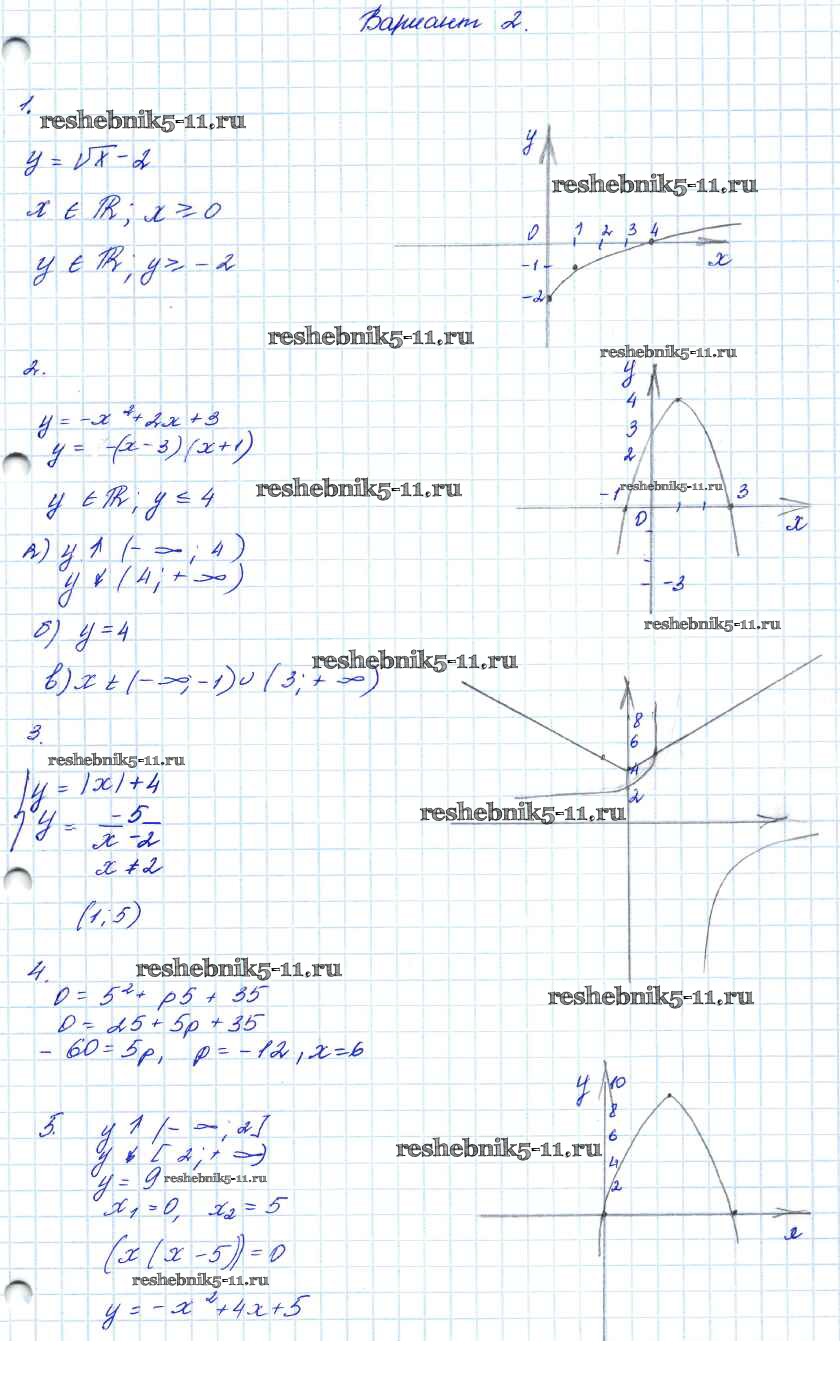 Вариант 2.
1.
reshebnik5-11.ru
y = √x - 2
x ∈ ℝ; x ≥ 0
y ∈ ℝ; y ≥ -2
y
reshebnik5-11.ru
0 1 2 3 4
x
-1
-2
reshebnik5-11.ru
2.
y = -x² + 2x + 3
y = -(x - 3)(x + 1)
y ∈ ℝ; y ≤ 4
reshebnik5-11.ru
а) y ↑ (-∞; 4)
y ↓ (4; +∞)
б) y = 4
в) x ∈ (-∞; -1) ∪ (3; +∞)
reshebnik5-11.ru
reshebnik5-11.ru
y
4
3
2
reshebnik5-11.ru
-1 3
0 x
-3
reshebnik5-11.ru
3.
reshebnik5-11.ru
y = |x| + 4
y = -5
x - 2
x ≠ 2
(1; 5)
8
6
4
2
reshebnik5-11.ru
4.
reshebnik5-11.ru
0 = 5² + p5 + 35
0 = 25 + 5p + 35
-60 = 5p, p = -12, x = 6
reshebnik5-11.ru
5.
y ↑ (-∞; 2]
y ↓ [2; +∞)
y = 9
reshebnik5-11.ru
x₁ = 0, x₂ = 5
(x(x - 5)) = 0
reshebnik5-11.ru
y = -x² + 4x + 5
y 10
8
6
4
2
x
reshebnik5-11.ru